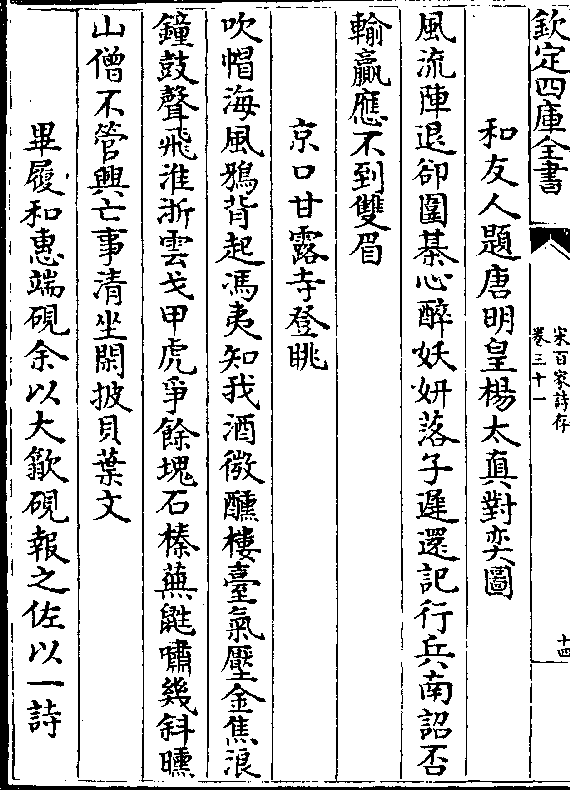 欽定四庫全書
宋百家詩存
卷三十一
十四
和友人題唐明皇楊太真對奕圖
風流陣退卻圍棊心醉妖妍落子遲還記行兵南詔否
輸贏應不到雙眉
京口甘露寺登眺
吹帽海風鴉背起馮夷知我酒微醺樓臺氣壓金焦浪
鐘鼓聲飛淮浙雲戈甲虎爭餘塊石榛蕪鼪嘯幾斜曛
山僧不管興亡事清坐閑披貝葉文
畢履和惠端硯余以大歙硯報之佐以一詩